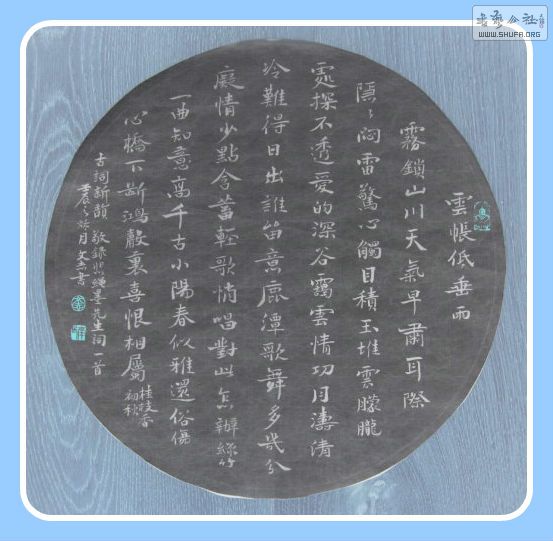 雲帳低垂雨
霧鎖山川天氣早肅耳際
隱々悶雷驚心觸目積玉堆雲朦朧
處探不透愛的深谷靄雲情切月濤清
泠難得日出誰笛意鹿潭歌舞多幾分
癡情少點含蓄輕歌悄唱對此怎辦絲竹
一曲知意高千古小陽春似雅還俗傷
心橋下斷鴻聲裏喜恨相屬
桂枝香
初秋
古詞新韻 敬錄 繩墨先生詞一首
月文 書
公社
WWW.SHUFA.ORG